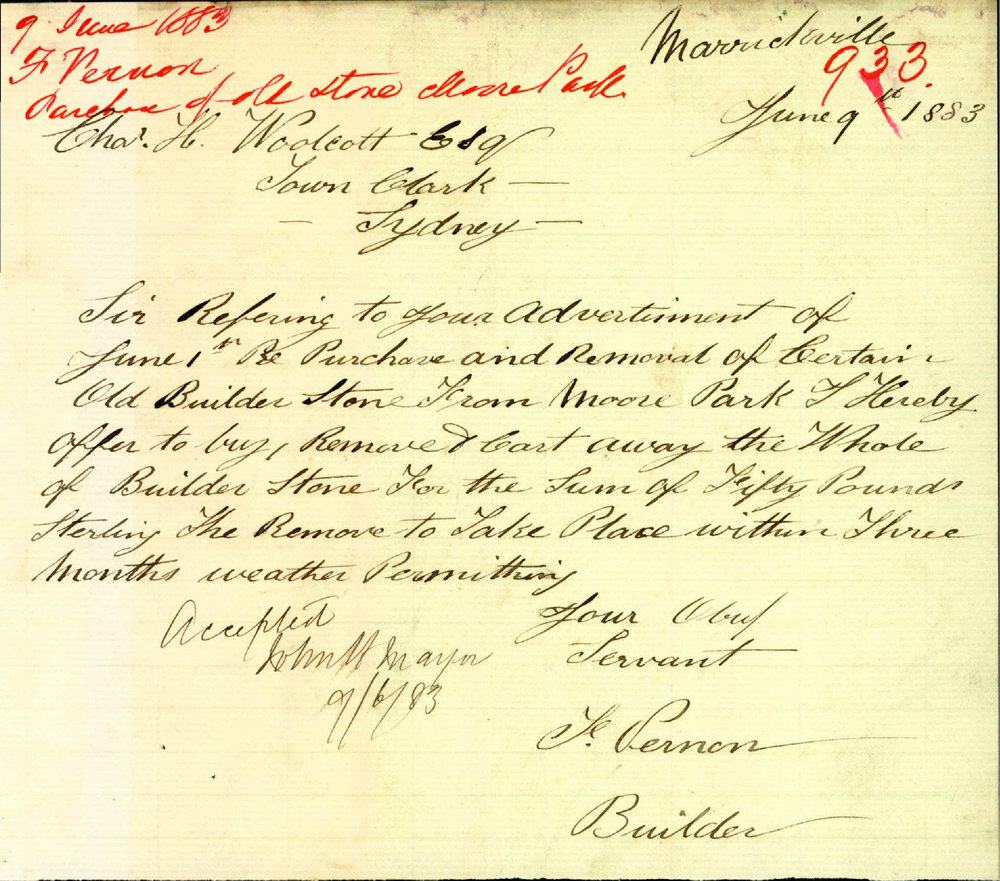 9 June 1883
F Vernon
Purchase of old stone Moore Park
Marrickville
933.
June 9th 1883
Chas. H. Woolcott Esq
Town Clark
Sydney
Sir Refering to Your Advertisment of
June 1st Re Purchase and Removal of Certain
Old Builder Stone From Moore Park I Hereby
offer to buy, Remove & Cart away the Whole
of Builder Stone For the Sum of Fifty Pounds
Sterling The Remove to Take Place within Three
Months weather Permitting
Your Obt
Servant
Accepted
John Mayor
9/6/83
F Vernon
Builder